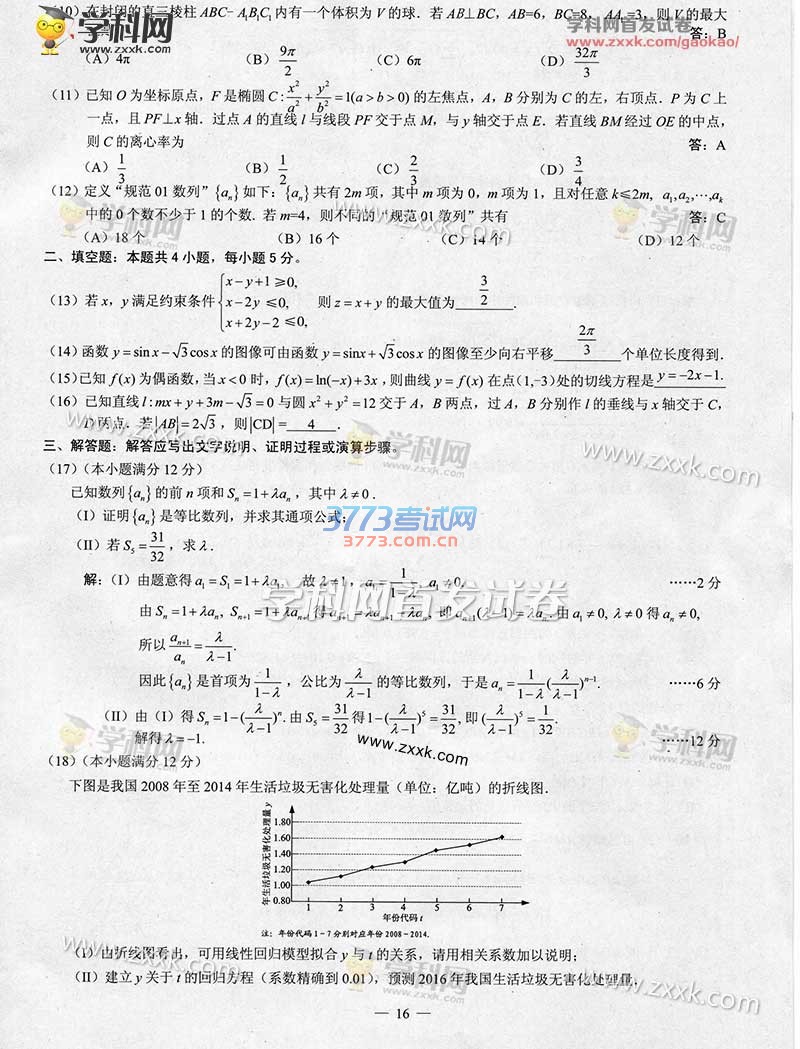 (10) 在封闭的直三棱柱 ABC-A₁B₁C₁ 内有一个体积为 V 的球. 若 AB⊥BC, AB=6, BC=8, AA₁=3, 则 V 的最大
学科网
www.zxxk.com
学科网首发试卷
www.zxxk.com/gaokao/
答: B
(A) 4π (B) 9π/2 (C) 6π (D) 32π/3
(11) 已知 O 为坐标原点, F 是椭圆 C: x²/a² + y²/b² = 1(a>b>0) 的左焦点, A, B 分别为 C 的左, 右顶点. P 为 C 上
一点, 且 PF⊥x 轴. 过点 A 的直线 l 与线段 PF 交于点 M, 与 y 轴交于点 E. 若直线 BM 经过 OE 的中点,
则 C 的离心率为 答: A
(A) 1/3 (B) 1/2 (C) 2/3 (D) 3/4
(12) 定义“规范 01 数列”{aₙ} 如下: {aₙ} 共有 2m 项, 其中 m 项为 0, m 项为 1, 且对任意 k≤2m, a₁,a₂,⋯,aₖ
中的 0 个数不少于 1 的个数. 若 m=4, 则不同的“规范 01 数列”共有 答: C
(A) 18 个 (B) 16 个 (C) 14 个 (D) 12 个
二、填空题: 本题共 4 小题, 每小题 5 分。
(13) 若 x, y 满足约束条件 { x-y+1≥0, x-2y≤0, x+2y-2≤0, 则 z=x+y 的最大值为 3/2 .
(14) 函数 y=sin x-√3cos x 的图像可由函数 y=sinx+√3cos x 的图像至少向右平移 2π/3 个单位长度得到.
(15) 已知 f(x) 为偶函数, 当 x<0 时, f(x)=ln(-x)+3x, 则曲线 y=f(x) 在点(1,-3)处的切线方程是 y=-2x-1.
(16) 已知直线 l:mx+y+3m-√3=0 与圆 x²+y²=12 交于 A, B 两点, 过 A, B 分别作 l 的垂线与 x 轴交于 C,
D 两点. 若|AB|=2√3, 则|CD|= 4 .
学科网
www.zxxk.com
三、解答题: 解答应写出文字说明、证明过程或演算步骤。
(17) (本小题满分 12 分)
已知数列{aₙ} 的前 n 项和 Sₙ=1+λaₙ, 其中 λ≠0.
(I) 证明{aₙ} 是等比数列, 并求其通项公式;
3773考试网
3773.com.cn
(II) 若 S₅=31/32, 求 λ.
解: (I) 由题意得 a₁=S₁=1+λa₁, 故 λ≠1, a₁=1/(1-λ), a₁≠0. ……2 分
学科网首发试卷
由 Sₙ=1+λaₙ, Sₙ₊₁=1+λaₙ₊₁ 得 aₙ₊₁=λaₙ₊₁-λaₙ, 即 aₙ₊₁(λ-1)=λaₙ. 由 a₁≠0, λ≠0 得 aₙ≠0,
所以 aₙ₊₁/aₙ=λ/(λ-1).
因此{aₙ} 是首项为 1/(1-λ), 公比为 λ/(λ-1) 的等比数列, 于是 aₙ=1/(1-λ)(λ/(λ-1))ⁿ⁻¹. ……6 分
(II) 由 (I) 得 Sₙ=1-(λ/(λ-1))ⁿ. 由 S₅=31/32 得 1-(λ/(λ-1))⁵=31/32, 即 (λ/(λ-1))⁵=1/32.
解得 λ=-1. ……12 分
www.zxxk.com
(18) (本小题满分 12 分)
下图是我国 2008 年至 2014 年生活垃圾无害化处理量 (单位: 亿吨) 的折线图.
年生活垃圾无害化处理量 y
1.80
1.60
1.40
1.20
1.00
0.80
1 2 3 4 5 6 7
年份代码 t
注: 年份代码 1-7 分别对应年份 2008-2014.
(I) 由折线图看出, 可用线性回归模型拟合 y 与 t 的关系, 请用相关系数加以说明;
(II) 建立 y 关于 t 的回归方程 (系数精确到 0.01), 预测 2016 年我国生活垃圾无害化处理量.
www.zxxk.com
— 16 —